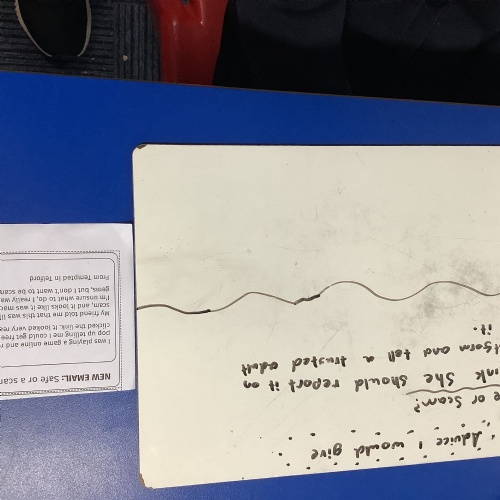 Advice I would give
e or Scam?
ink She should report it on
tform and tell a trusted adult
it.
NEW EMAIL: Safe or a scam
I was playing a game online and
pop up telling me I could get free
clicked the link. It looked very rea
My friend told me that this was
scam, and it looks like it was
I'm unsure what to do, I really wa
gems, but I don't want to be scam
From Tempted in Telford